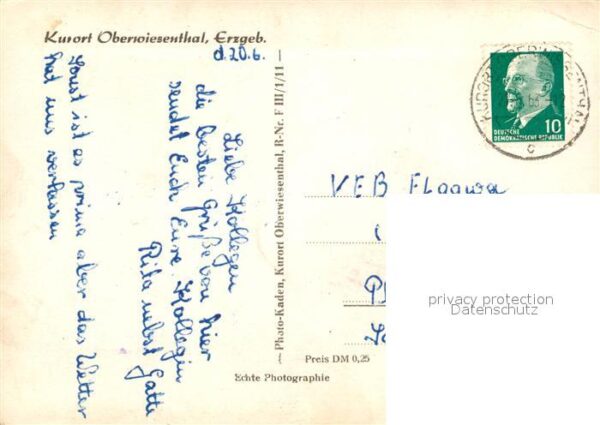 Kurort Oberwiesenthal, Erzgeb.
d. 20.6.
Liebe Kollegen
die besten Grüße von hier
sendet Euch Eure Kollegin
Rita nebst Gatte
Sonst ist es prima aber das Wetter
hat uns verlassen
— Photo-Kaden, Kurort Oberwiesenthal, R.-Nr. F III/1/11 —
Preis DM 0,25
Echte Photographie
10
DEUTSCHE
DEMOKRATISCHE REPUBLIK
KURORT OBERWIESENTHAL
c
VEB
privacy protection
Datenschutz